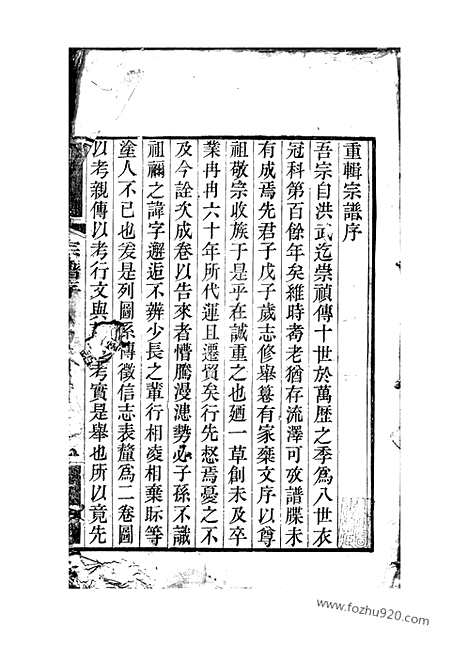 重輯宗譜序
吾宗自洪武迄崇禎傳十世於萬歷之季為八世衣
冠科第百餘年矣維時耈老猶存流澤可攷譜牒未
有成焉先君子戊子歲志修舉纂有家乘文序以尊
祖敬宗收族于是乎在誠重之也廼一草創未及卒
業冉冉六十年所代運且遷貿矣行先惄焉憂之不
及今詮次成卷以告來者懵騰漫漶勢必子孫不識
祖禰之諱字邂逅不辨少長之輩行相凌相棄眎等
塗人不已也爰是列圖系傳徵信志表釐為二卷圖
以考親傳以考行文與 考實是舉也所以竟先
宗譜序
www.fozhu920.com